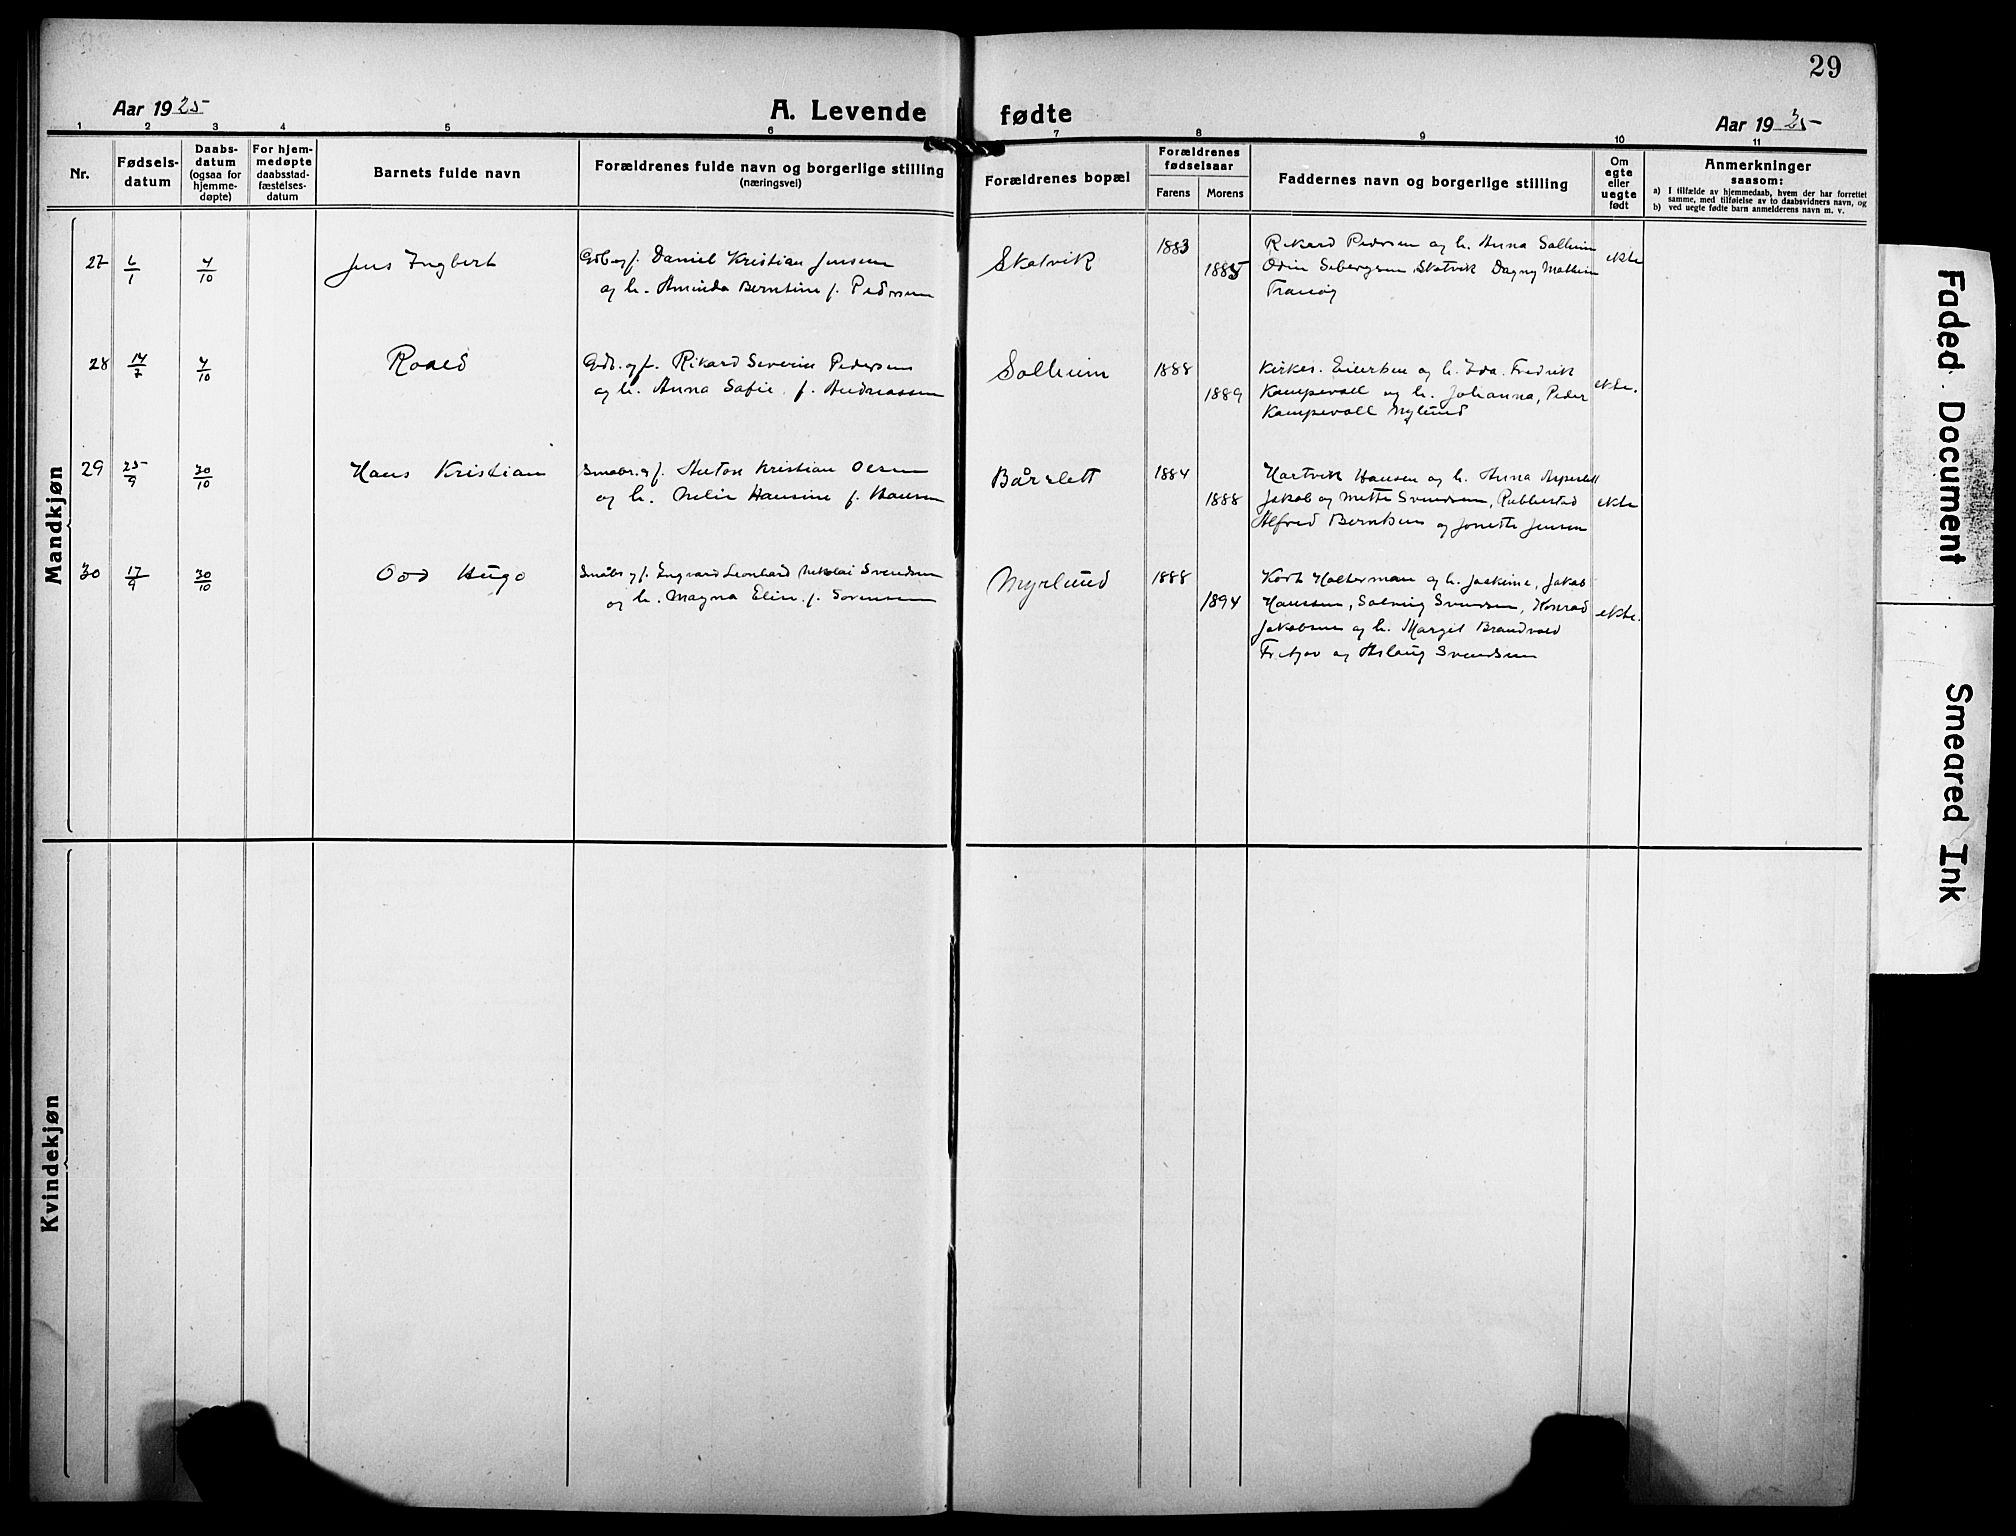 29
Aar 1925
A. Levende fødte
Aar 1925
1 2 3 4 5 6 7 8 9 10 11
Nr.
Fødsels-
datum
Daabs-
datum
(ogsaa for
hjemme-
døpte)
For hjem-
medøpte
daabsstad-
fæstelses-
datum
Barnets fulde navn
Forældrenes fulde navn og borgerlige stilling
(næringsvei)
Forældrenes bopæl
Forældrenes
fødselsaar
Farens Morens
Faddernes navn og borgerlige stilling
Om
egte
eller
uegte
født
Anmerkninger
saasom:
a) I tilfælde av hjemmedaab, hvem der har forrettet
samme, med tilføielse av to daabsvidners navn, og
b) ved uegte fødte barn anmelderens navn m. v.
Mandkjøn
27 6/1 4/10 Jens Ingbert
Gdb. og f. Daniel Kristian Jensen
og h. Aminda Berntine f. Pedersen
Skatvik
1883
1885
Rikard Pedersen og h. Anna Solheim
Odin Sebergsen Skatvik Dagny
Tranøy
ekte
28 14/7 4/10 Roald
Gdb. og f. Rikard Severin Pedersen
og h. Anna Sofie f. Andreassen
Solheim
1888
1889
Kirkes. Eilertsen og h. Ida. Fredrik
Kampevoll og h. Johanna, Peder
Kampevoll Myrlund
ekte.
29 25/9 30/10 Hans Kristian
Småbr. og f. Anton Kristian Olsen
og h. Nelie Hansine f. Hansen
Bårslett
1884
1888
Hartvik Hansen og h. Anna
Jakob og Mette Svendsen, Rubbestad
Alfred Berntsen og Jonette Jensen
ekte
30 17/9 30/10 Odd Hugo
Småbr og f. Ingvard Leonhard Nikolai Svendsen
og h. Magna Elise f. Sørensen
Myrlund
1888
1894
Kort Holterman og h. Jaakime, Jakob
Hanssen, Solveig Svendsen, Konrad
Jakobsen og h. Margit Brandvold
Fritjov og Aslaug Svendsen
ekte.
Kvindekjøn
Faded Document
Smeared Ink